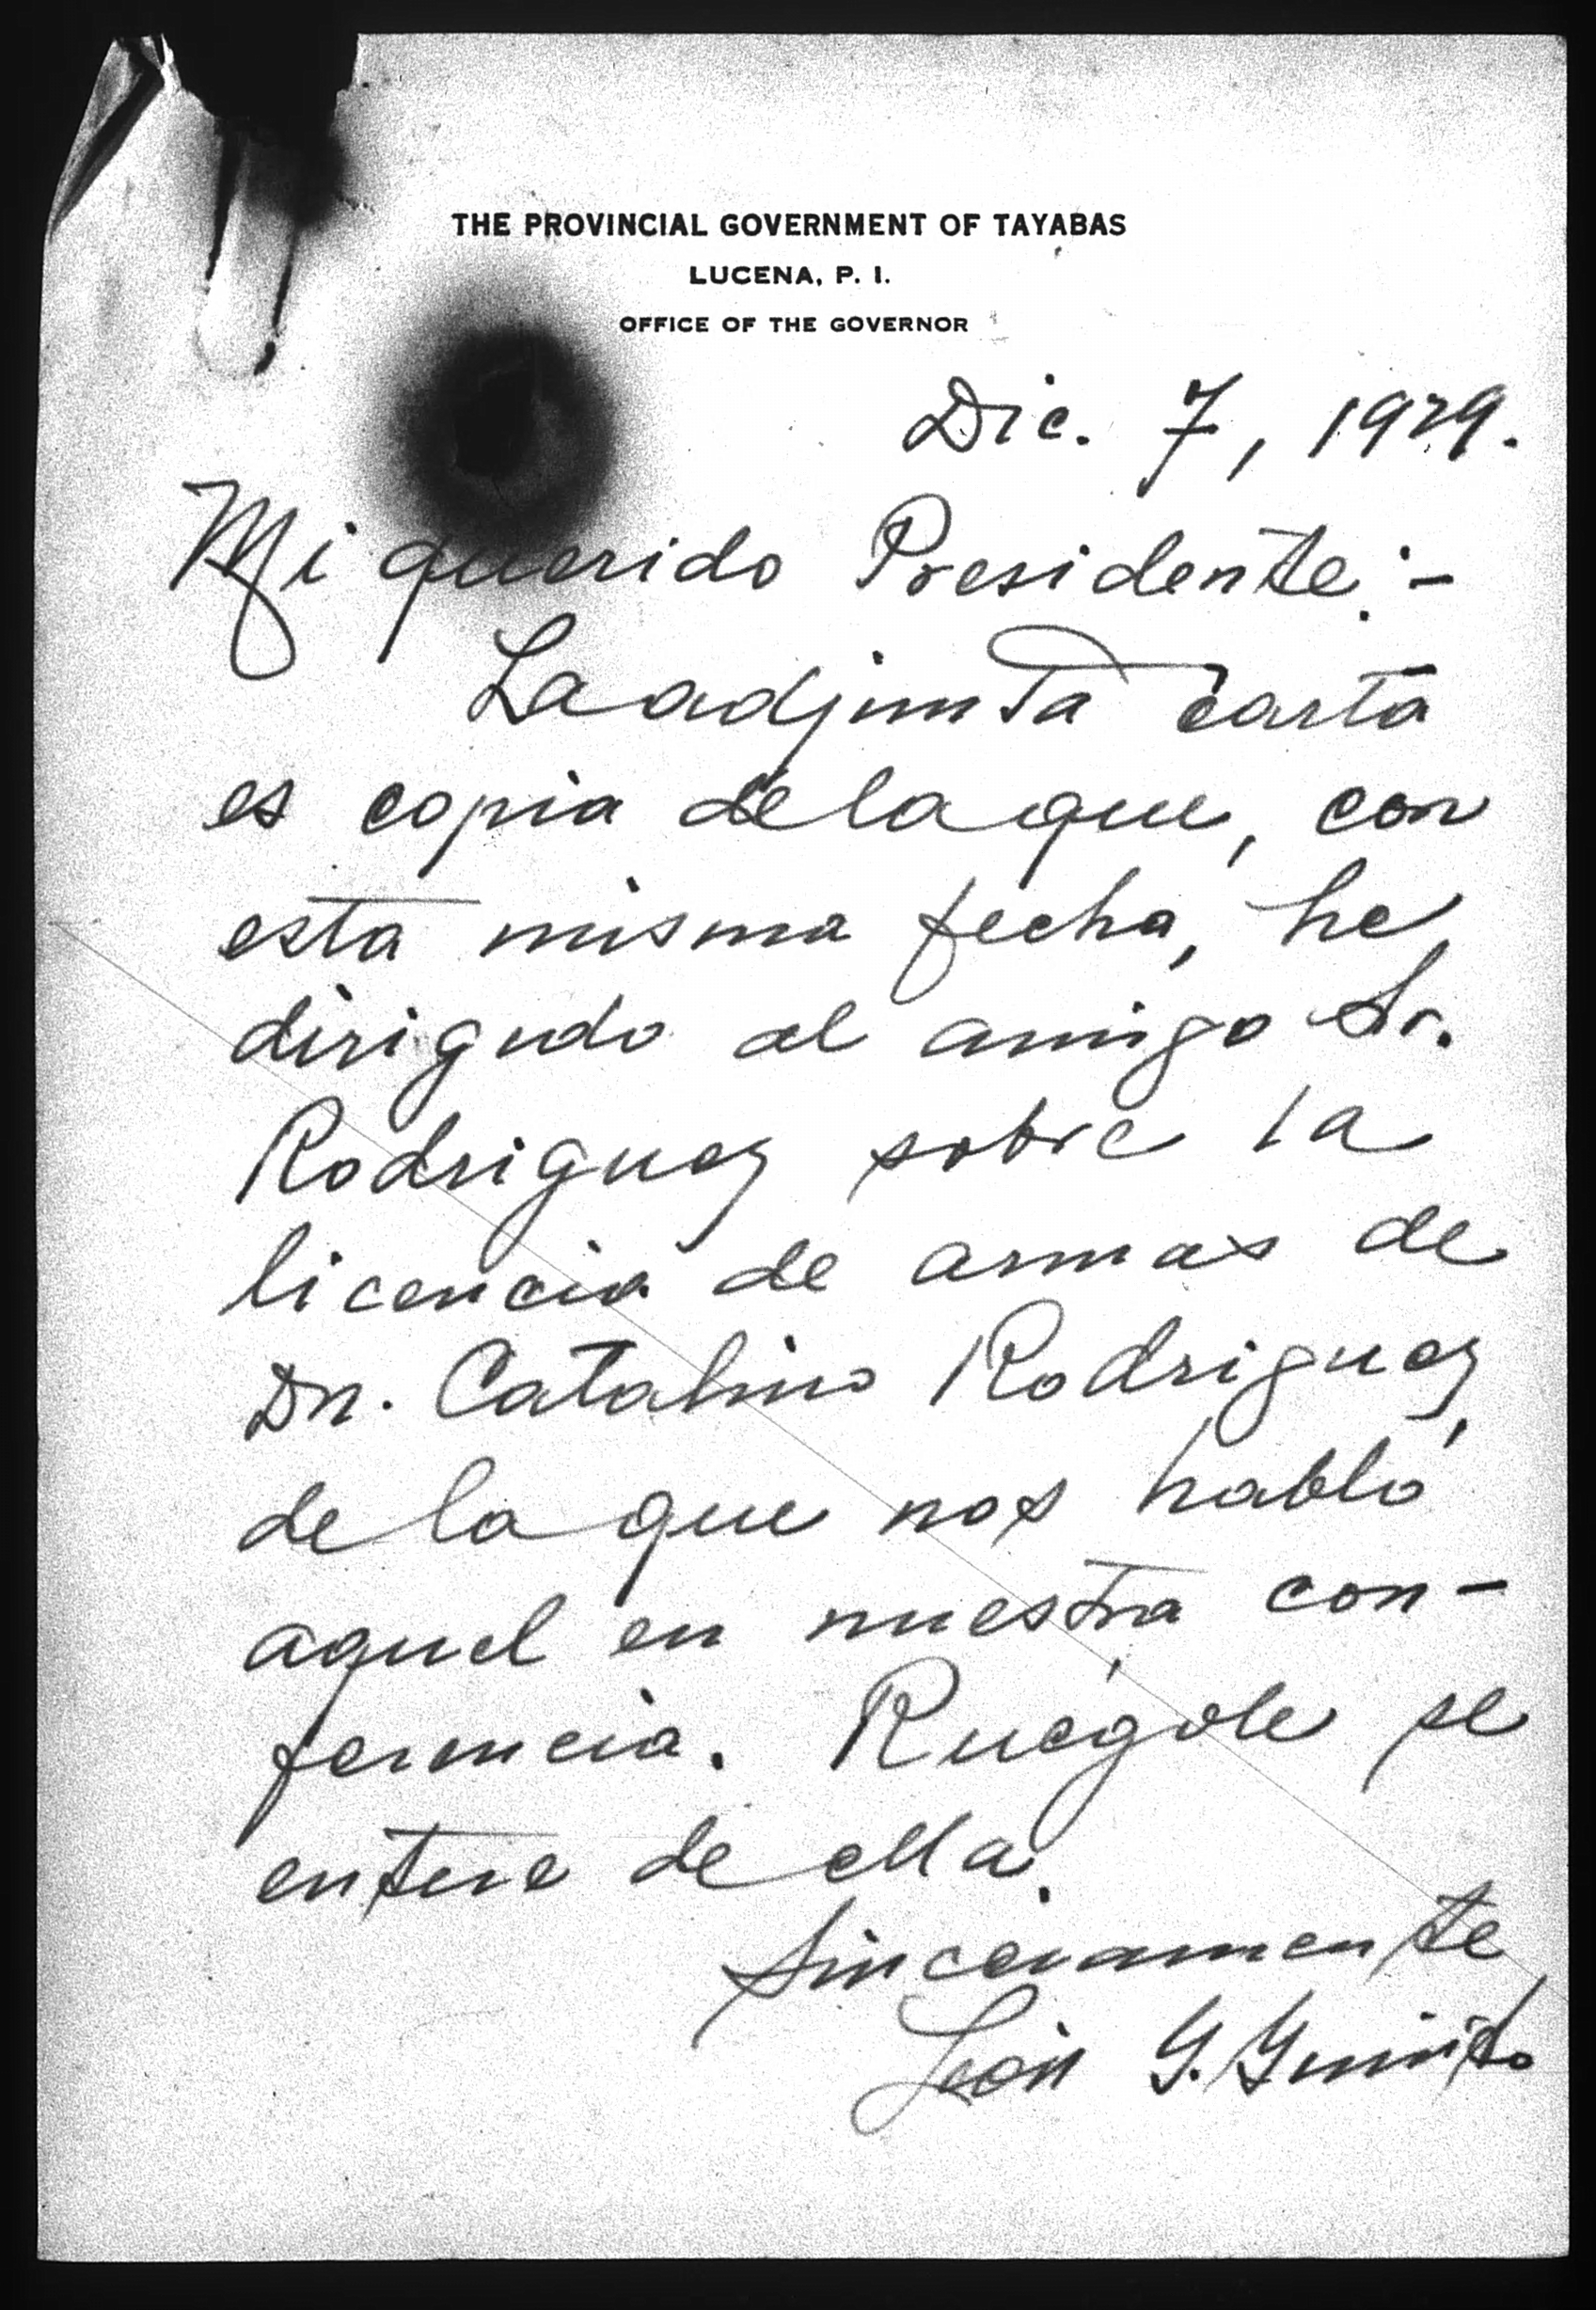 THE PROVINCIAL GOVERNMENT OF TAYABAS
LUCENA, P. I.
OFFICE OF THE GOVERNOR
Dic. 7, 1929.
Mi querido Presidente:-
La adjunta carta
es copia de la que, con
esta misma fecha, he
dirigido al amigo Sr.
Rodriguez sobre la
licencia de armas de
Dn. Catalino Rodriguez,
de la que nos habló
aquel en nuestra con-
ferencia. Ruégole se
entere de ella.
Sinceramente,
León G. Guinto